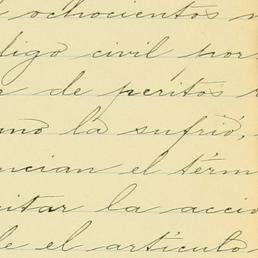 ochocientos
digo civil por
de peritos
uno la sufrió,
ncian el térm
citar la acció
de el artículo